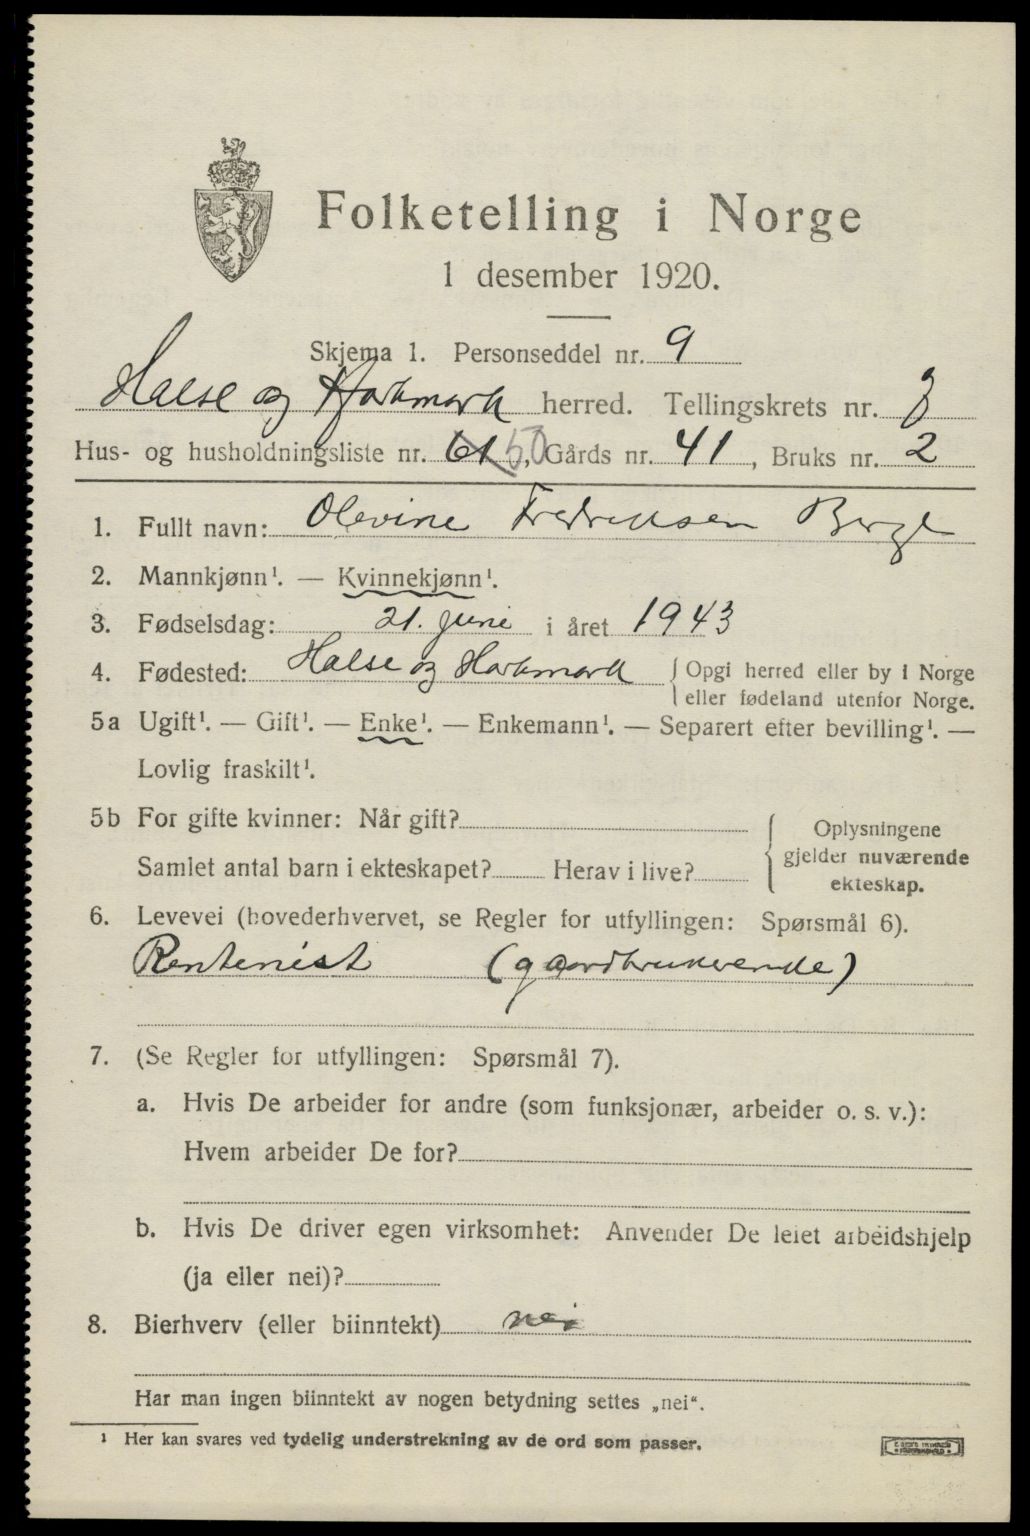 Folketelling i Norge
1 desember 1920.
Skjema 1. Personseddel nr. 9
Halse og Harkmark herred. Tellingskrets nr. 3
Hus- og husholdningsliste nr. 61 50, Gårds nr. 41, Bruks nr. 2
1. Fullt navn: Olevine Fredriksen Berge
2. Mannkjønn¹. — Kvinnekjønn¹.
3. Fødselsdag: 21. juni i året 1943
4. Fødested: Halse og Harkmark { Opgi herred eller by i Norge
eller fødeland utenfor Norge.
5a Ugift¹. — Gift¹. — Enke¹. — Enkemann¹. — Separert efter bevilling¹. —
Lovlig fraskilt¹.
5b For gifte kvinner: Når gift?
Samlet antal barn i ekteskapet? Herav i live?
Oplysningene
gjelder nuværende
ekteskap.
6. Levevei (hovederhvervet, se Regler for utfyllingen: Spørsmål 6).
Rentenist (gaardbrukerende)
7. (Se Regler for utfyllingen: Spørsmål 7).
a. Hvis De arbeider for andre (som funksjonær, arbeider o. s. v.):
Hvem arbeider De for?
b. Hvis De driver egen virksomhet: Anvender De leiet arbeidshjelp
(ja eller nei)?
8. Bierhverv (eller biinntekt) nei
Har man ingen biinntekt av nogen betydning settes „nei“.
¹ Her kan svares ved tydelig understrekning av de ord som passer.